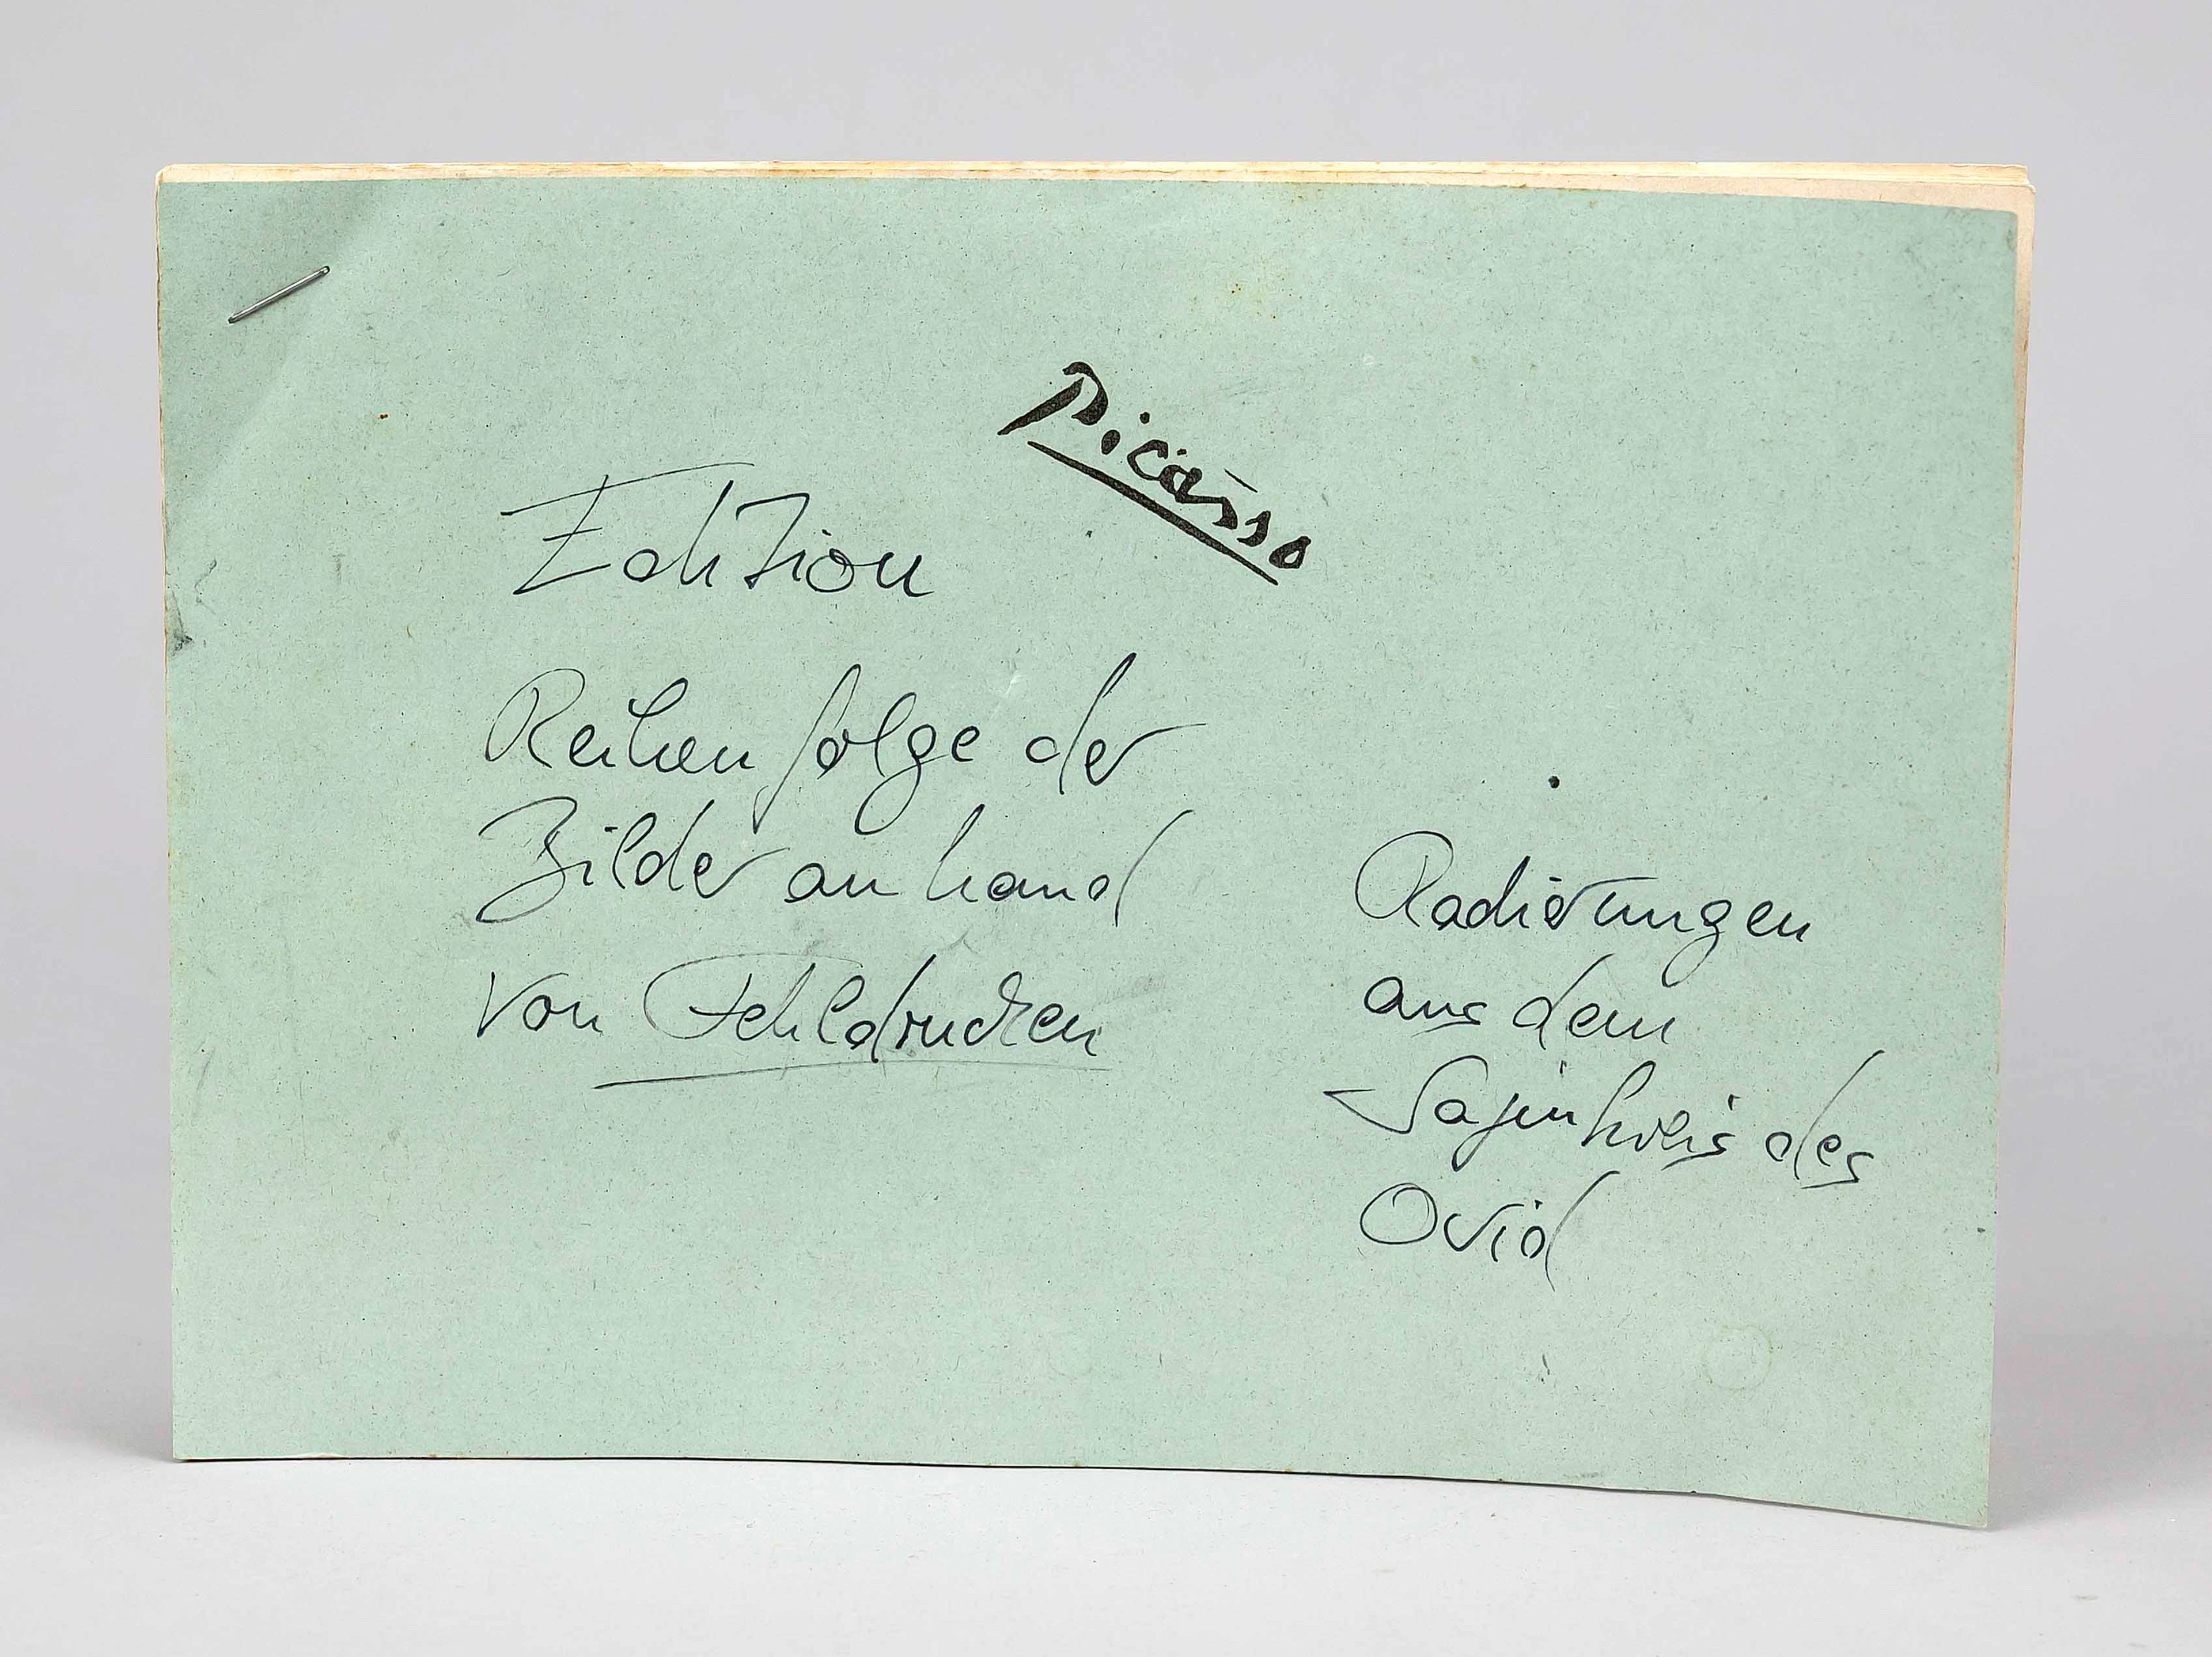 Picasso
Edition
Reihenfolge der
Bilder anhand
von Fehldrucken
Radierungen
aus dem
Sagenkreis des
Ovid